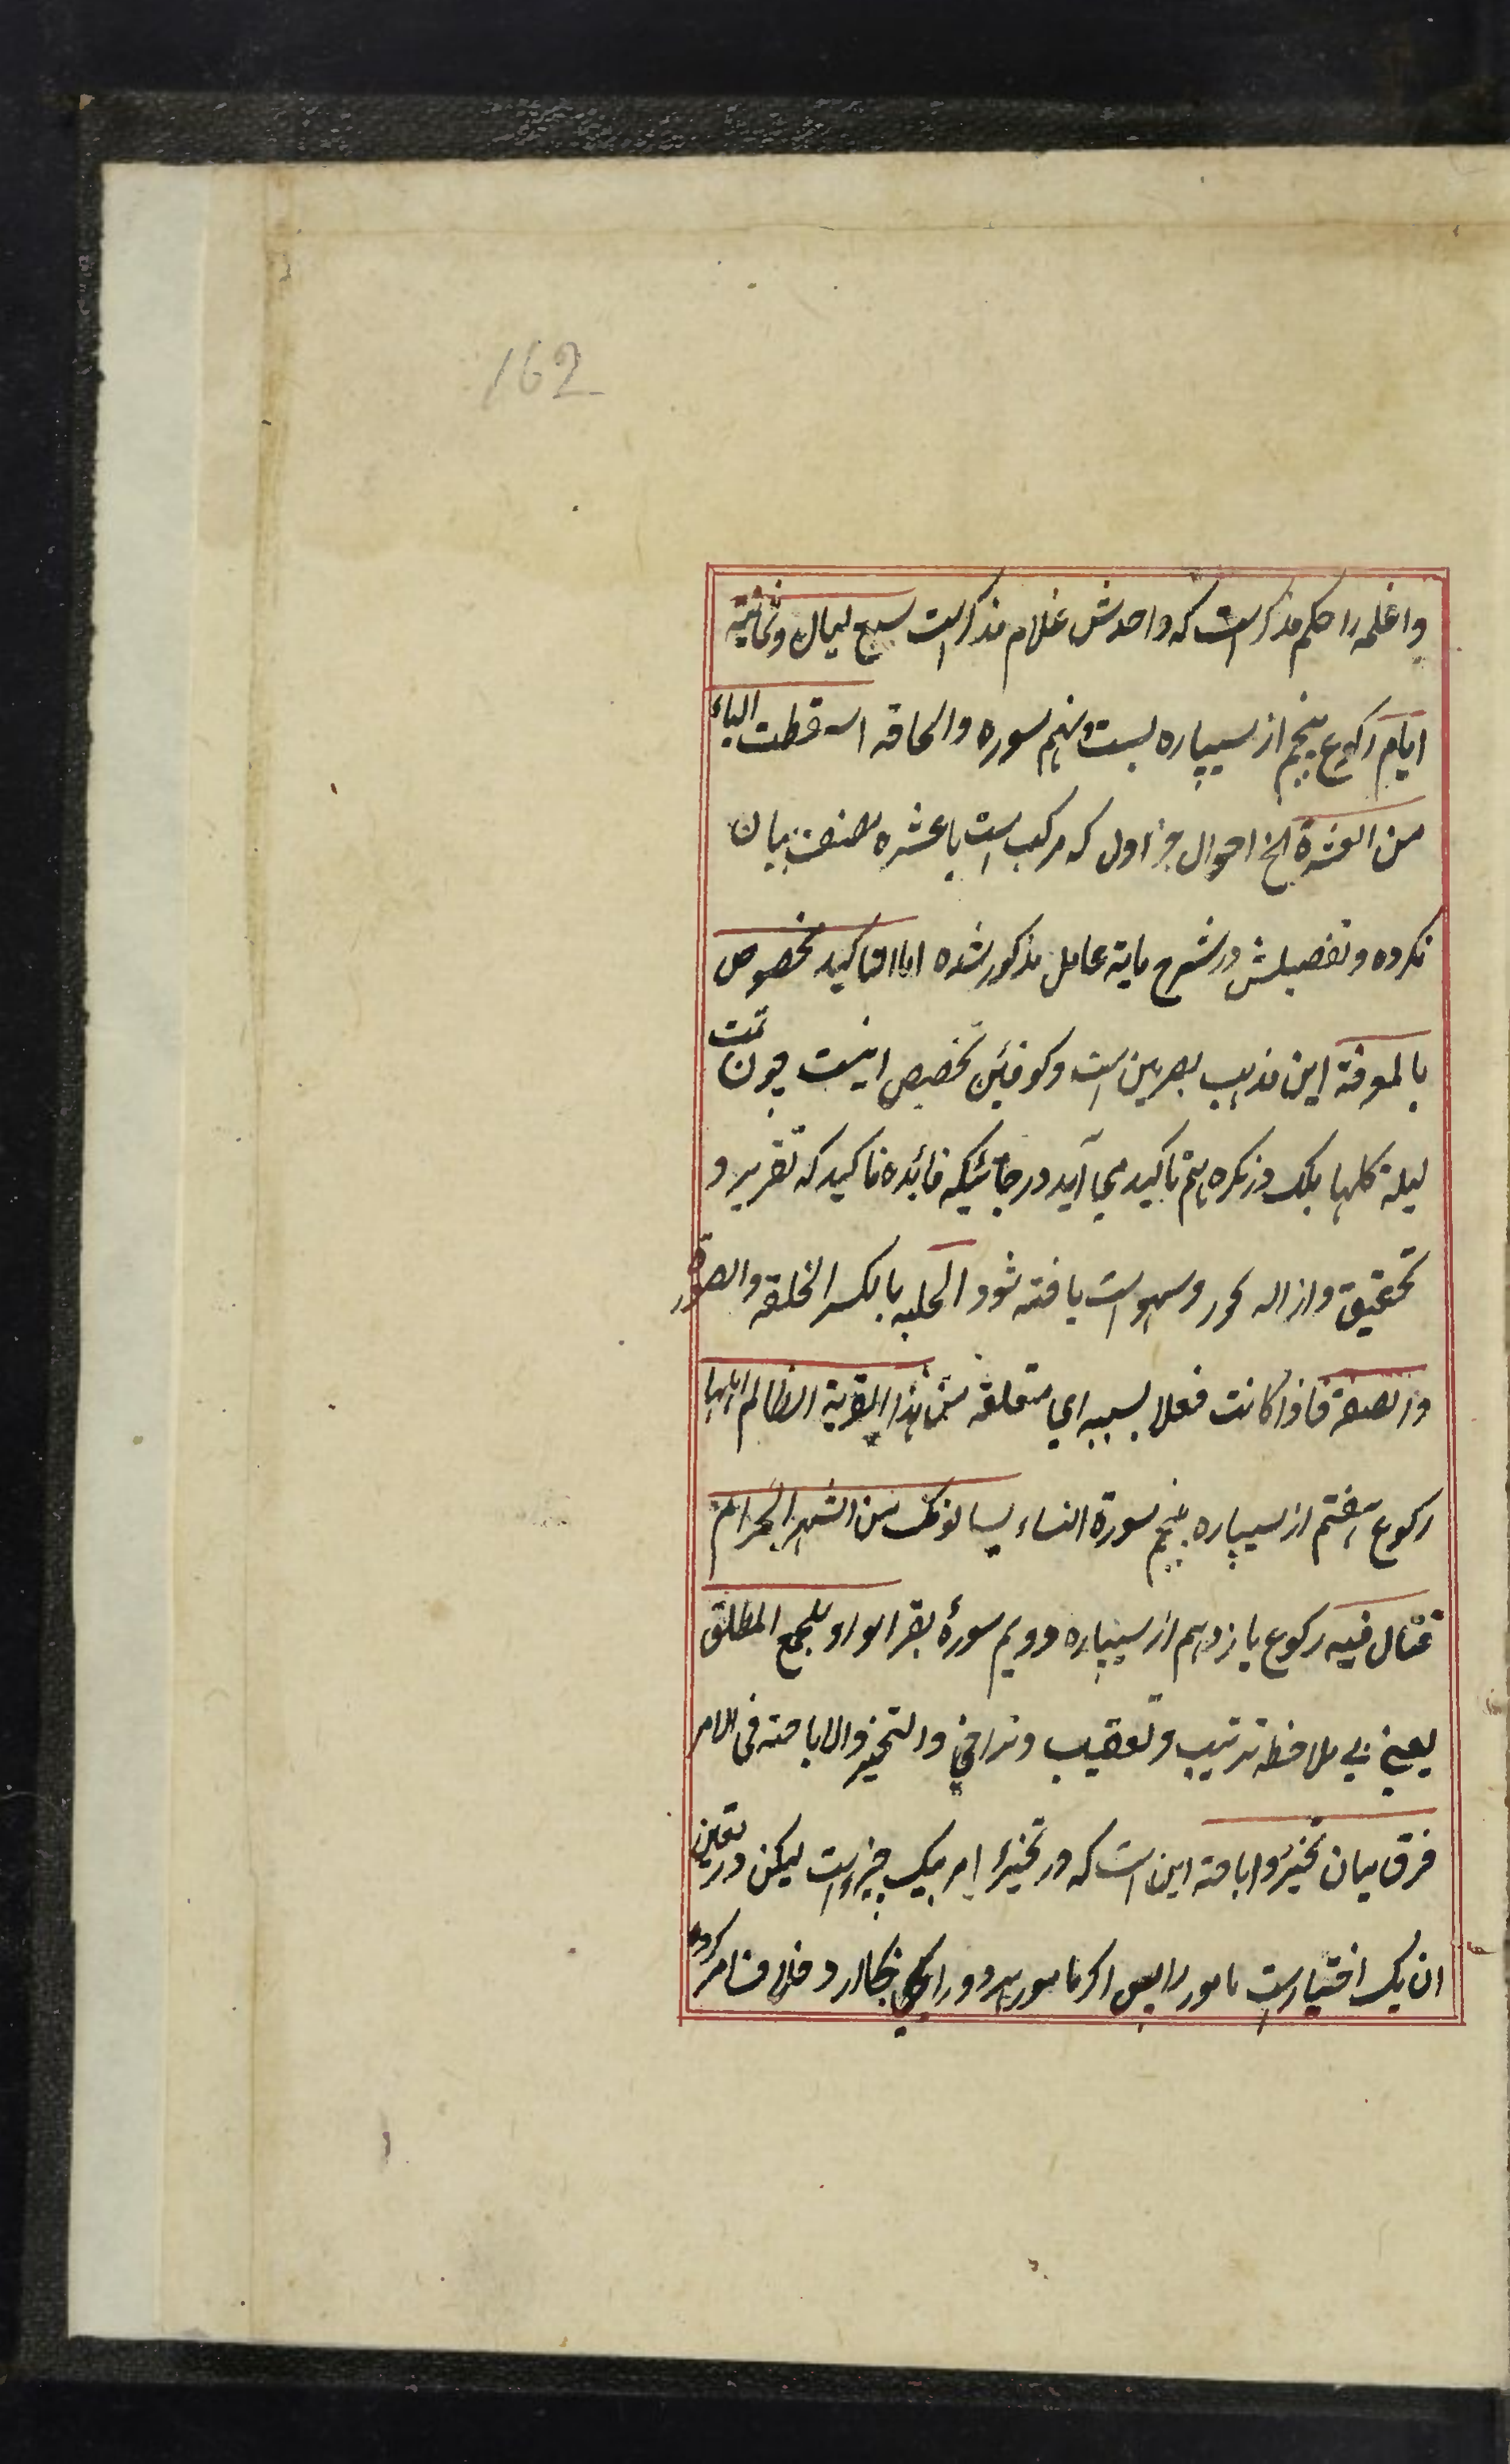 162
واغلمه را حکم مذکر است که واحدش غلام مذکر است سبع لیال وثمانیة
ایام رکوع پنجم از سیپاره بست ونهم سوره والحاقه اسقطت الیاء
من العشرة الخ احوال جز اول که مرکب است با عشره مصنف بیان
نکرده وتفصیلش در شرح مایة عامل مذکور شده اما التاکید مخصوص
بالمعرفة این مذهب بصرین است وکوفیین تخصیص نیست چون قمت
لیلة کلها بلک در نکره هم تاکید می آید در جائیکه فائده تاکید که تقریر و
تحقیق وازاله وسهو است یافته شود الحلیه بالکسر الخلقه والصورة
والصفة فاذا کانت فعلا بسببه ای متعلقه من هذه القریة الظالم اهلها
رکوع هفتم از سیپاره پنجم سورة النساء یسالونک من الشهر الحرام
قتال فیه رکوع یازدهم از سیپاره دویم سورۀ بقر الواو للجمع المطلق
یعنی بی ملاحظه ترتیب وتعقیب وتراخی والتخیر والاباحته فی الامر
فرق میان تخیر واباحته این است که در تخیر امر بیک چیز است لیکن در تعین
ان یک اختیار است مامور را پس اکر مامور هر دو را بجا ارد خلاف امر کرده